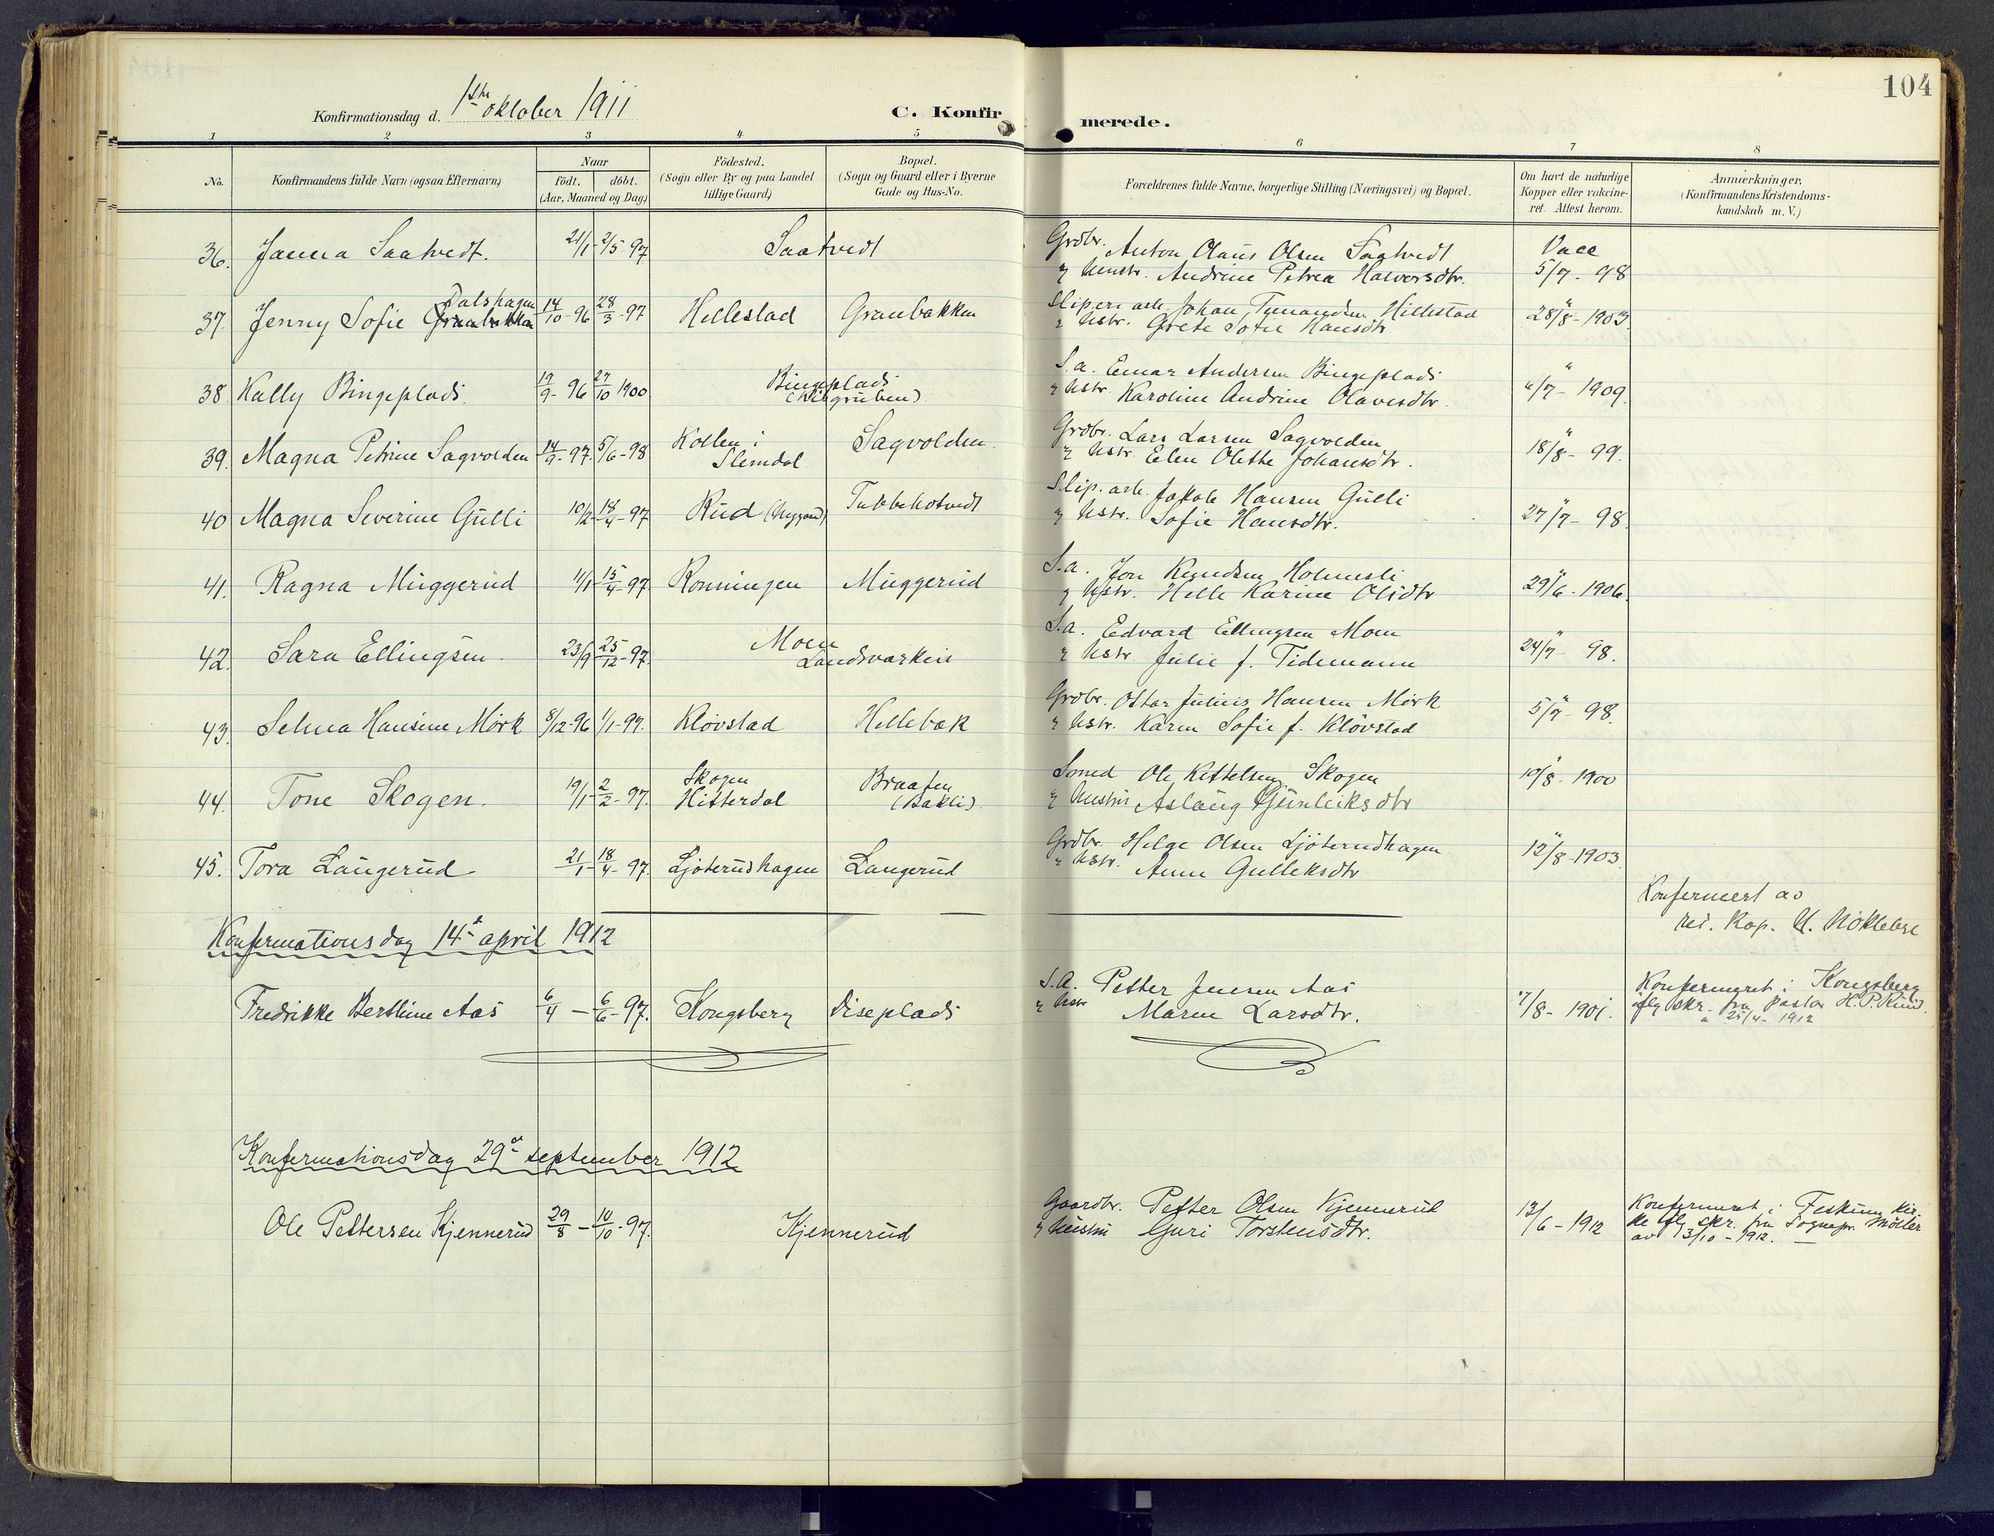 104
Konfirmationsdag d. 1ste oktober 1911 C. Konfirmerede.
1 2 3 4 5 6 7 8
No. Konfirmandens fulde Navn (ogsaa Efternavn)
Naar
födt. döbt.
(Aar, Maaned og Dag)
Födested.
(Sogn eller By og paa Landet
tillige Gaard)
Bopæl.
(Sogn og Gaard eller i Byerne
Gade og Hus-No.
Forældrenes fulde Navne, borgerlige Stilling (Næringsvei) og Bopæl.
Om havt de naturlige
Kopper eller vakcine-
ret. Attest herom.
Anmærkninger.
(Konfirmandens Kristendoms-
kundskab m. V.)
36. Janna Saatvedt. 21/1 - 2/5 - 97 Saatvedt Grdbr. Anton Olaus Olsen Saatvedt Vacc
& Hustr. Andrine Petrea Halvorsdtr. 5/7 - 98
37. Jenny Sofie Dalshagen 14/10 - 96 28/3 - 97 Hellestad Granbakken Sliperiarb. Johan Hillestad
& Hustr. Grete Sofie Hansdtr 28/8 - 1903
38. Kally Bingeplads. 19/9 - 96 27/10 1900 Bingeplads S.a. Einar Andersen Bingeplads "
& Hustr. Karoline Andrine Olavesdtr. 6/7 - 1909
39. Magna Petrine Sagvolden 14/9 - 97. 5/6 - 98 Kollen i Slemdal Sagvolden Grdbr. Lars Larsen Sagvolden "
& Hustr. Elen Olette Johansdtr. 18/8 - 99.
40 Magna Severine Gulli 10/2 - 18/4 - 97 Rud (Nygaard) Tubbehotvedt Slip. arb. Jakob Hansen Gulli "
& Hustr. Sofie Hansdtr. 27/7 - 98.
41. Ragna Muggerud 1/1 15/4 - 97. Rønningen Muggerud S.a. Jon Knudsen Holmesli "
& Hustr. Helle Karine Olsdtr 29/6 - 1906.
42. Sara Ellingsen 23/9 25/12 - 97. Moen Landsverkein S.a. Edvard Ellingsen Moen "
& Hustr. Julie f. Tidemann 24/7 - 98.
43. Selma Hansine Mørk 8/12 - 96 1/1 - 97. Kløvstad Hellebæk Grdbr. Ottar Julius Hansen Mørk "
& Hustr. Karen Sofie f. Kløvstad 5/7 - 98.
44. Tone Skogen. 19/1 - 2/2 - 97. Skogen Hitterdal Braaten (Bakli). Smed Ole Kittelsen Skogen "
& Hustru Aslaug Gunleiksdtr 10/8 - 1900
45. Tora Langerud 21/1 - 18/4 - 97. Ljøterudhagen Langerud Grdbr. Helge Olsen Ljøterudhagen "
& Hustr. Anne Gulleksdtr 12/8 - 1903
Konfermert av
res. kap. H. Nøkleby
Konfermationsdag 14de april 1912
Fredrikke Berthine Aas 6/4 - 6/6 - 97. Kongsberg Diseplads S.A. Petter Jensen Aas
& Hustr Maren Larsdtr. 7/8 - 1901. Konfermeret i Kongsberg
iflg skr. fra pastor H. P.
25/4 - 1912
Konfermationsdag 29de september 1912
Ole Pettersen Kjennerud 29/8 - 10/10 - 97. Kjennerud Gaardbr. Petter Olsen Kjennerud
& Hustru Guri Torstensdtr. 13/6 - 1912 Konfermeret i Feskum kir-
ke iflg skr. fra Sognepr. Møller
av 3/10 - 1912.